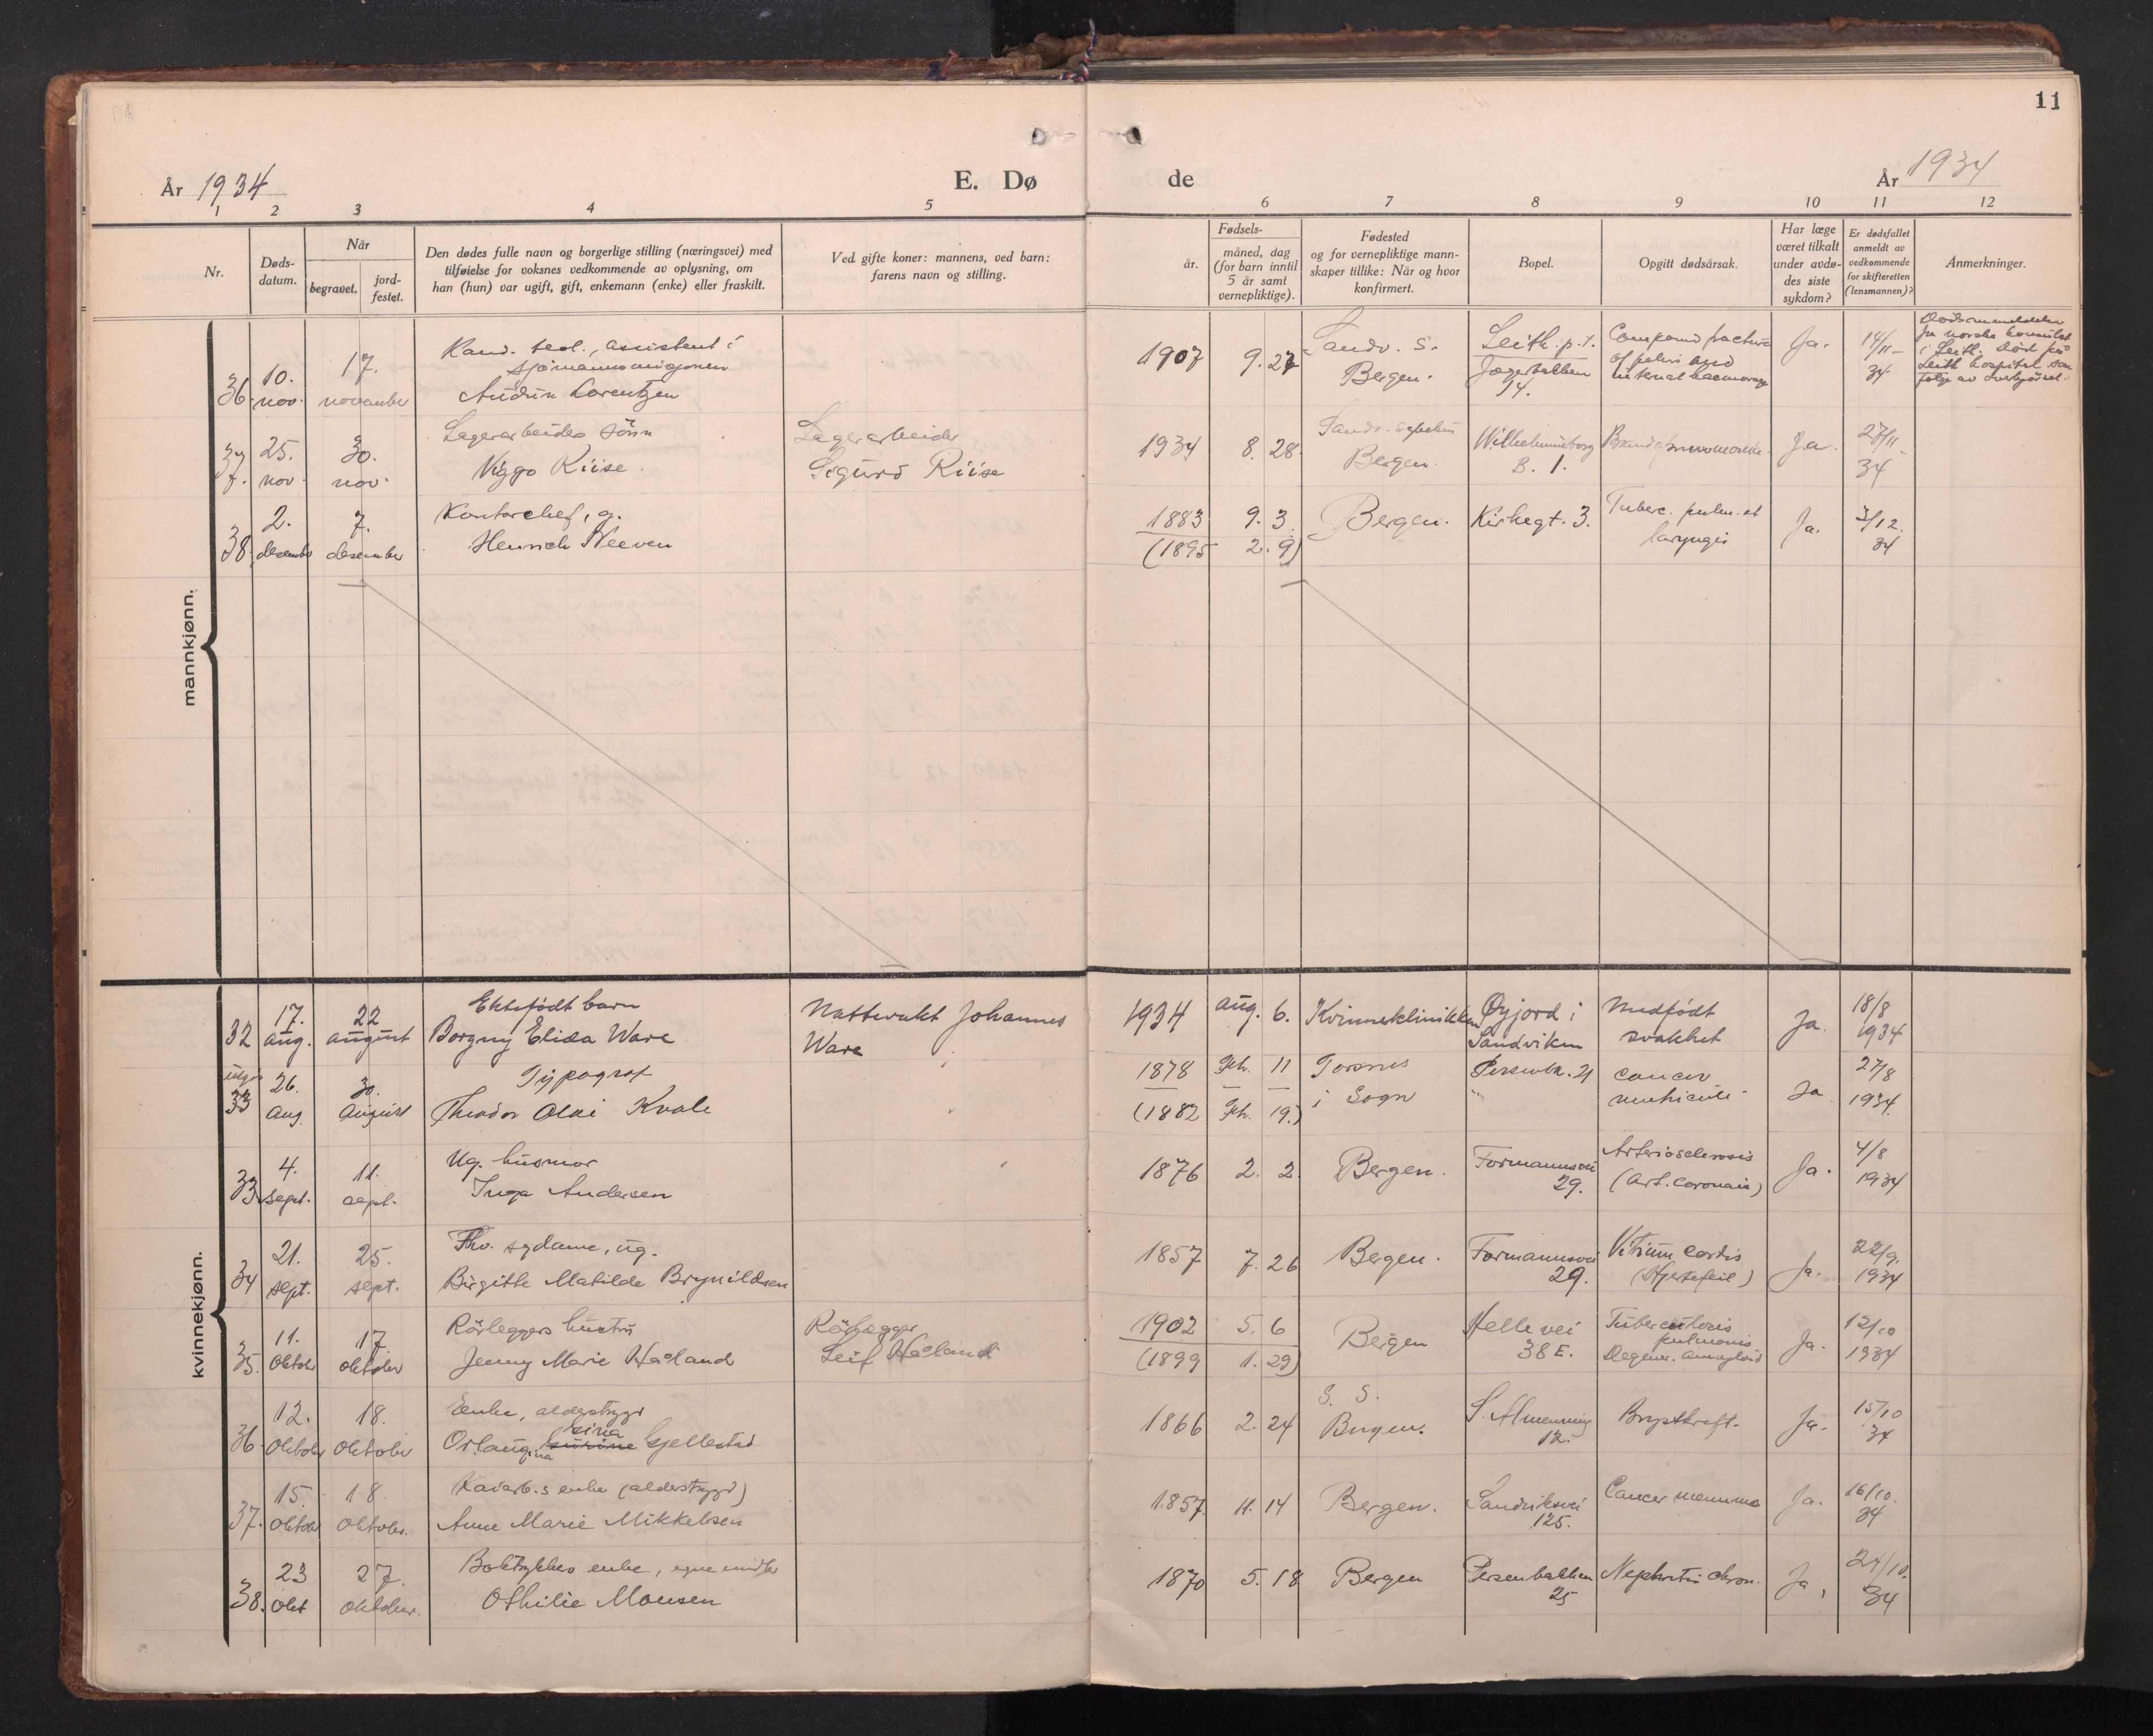 11
År 1934
E. Dø
de
År 1934
1 2 3 4 5 6 7 8 9 10 11 12
Nr.
Døds-
datum.
Når
begravet.
jord-
festet.
Den dødes fulle navn og borgerlige stilling (næringsvei) med
tilføielse for voksnes vedkommende av oplysning, om
han (hun) var ugift, gift, enkemann (enke) eller fraskilt.
Ved gifte koner: mannens, ved barn:
farens navn og stilling.
Fødsels-
år.
måned, dag
(for barn inntil
5 år samt
vernepliktige).
Fødested
og for vernepliktige mann-
skaper tillike: Når og hvor
konfirmert.
Bopel.
Opgitt dødsårsak.
Har læge
været tilkalt
under avdø-
des siste
sykdom?
Er dødsfallet
anmeldt av
vedkommende
for skifteretten
(lensmannen)?
Anmerkninger.
mannkjønn.
36. 10. nov. 17. november
Kand. teol., assistent i
sjømannsmisjonen
Audun Lorentzen
1907 9. 27
Sandv. S.
Bergen.
Leith. p.t.
Jægerbakken
94.
Compound fracture
of pelvis and
internal haemorrage
Ja.
14/11-
34
i Leith. Død på
Leith hospital som
følge av overkjørsel.
37. 25. nov. 30. nov.
Lagerarbeiders sönn
Viggo Riise.
Lagerarbeider
Sigurd Riise
1934 8. 28.
Bergen.
B. 1.
Ja.
27/11-
34
38. 2. desember 7. desember
Kontorchef, g.
Henrich Neeven
1883 9. 3
(1895 2. 9)
Bergen.
Kirkegt. 3.
Tuberc. pulm. et
laryngis
Ja.
3/12.
34
kvinnekjønn.
32 17. aug. 22 august
Ektefødt barn
Borgny Elida Ware
Nattevakt Johannes
Ware
1934 aug. 6.
Kvinneklinikken
Øyjord i
Sandviken
Medfødt
svakhet
Ja.
18/8
1934
33 26. aug. 30. august
Typograf
Theodor Olai Kvale
1878 Feb. 11
(1882 Feb. 19.)
i Sogn
cancer
ventriculi
Ja
27/8
1934
33. 4. sept. 11. sept.
Ug. husmor
Inga Andersen
1876 2. 2.
Bergen.
Formannsvei
29.
Arteriosclerosis
(Art. coronaria)
Ja.
4/8
1934
34 21. sept. 25. sept.
Fhv. sydame, ug.
Birgitte Matilde Brynildsen
1857 7. 26
Bergen.
Formannsvei
29.
Vitium cordis
(Hjertefeil)
Ja.
22/9.
1934
35. 11. oktober 17. oktober
Rörleggers hustru
Jenny Marie Haaland
Rörlegger
Leif Haaland
1902 5. 6
(1899 1. 29)
Bergen
Helle vei
38 E.
Tuberculosis
pulmonis
Degener. amyloid
Ja.
12/10
1934
36. 12. oktober 18. oktober
Enke, alderstrygd
Gjellestad
1866 2. 24
S. S.
Bergen.
S. Almenning
12.
Brystkreft.
Ja.
15/10
34
37. 15. oktober 18. oktober.
Kaiarb.s enke (alderstrygd)
Anne Marie Mikkelsen
1857. 11. 14
Bergen.
Sandviksvei
125.
Cancer mamma
Ja.
16/10.
34
38. 23 okt 27. oktober.
Boktrykkers enke, egne midler
Othilie Monsen
1870 5. 18
Bergen
Persenbakken
25
Nephritis chron.
Ja,
24/10.
34